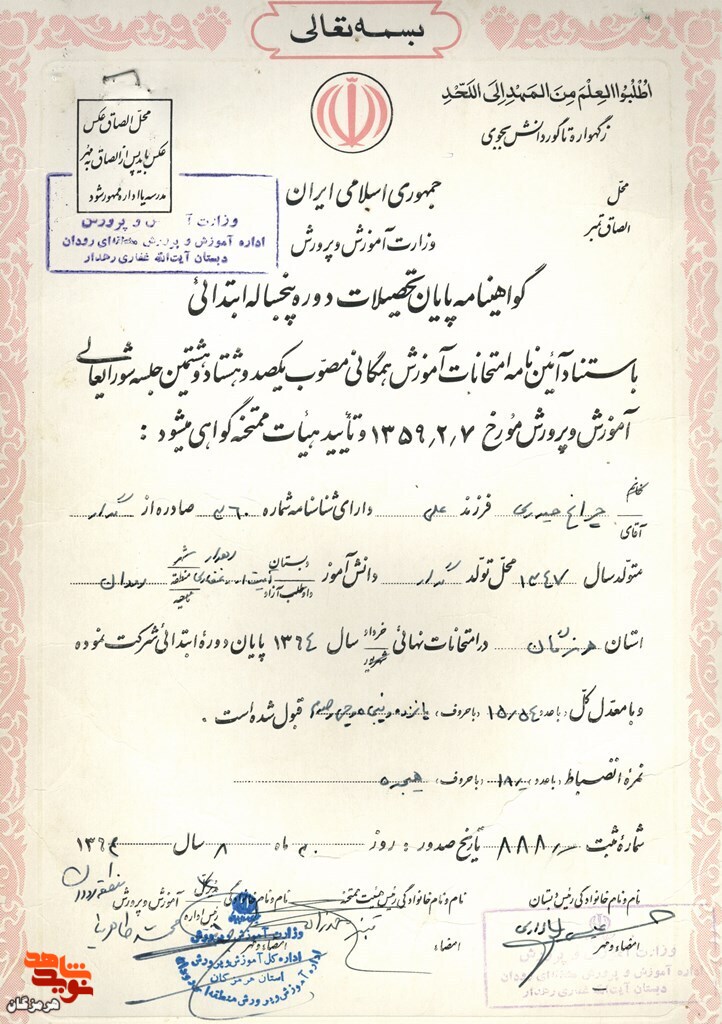 بسمه تعالی
اطْلُبُوا العِلْمَ مِنَ المَهْدِ إِلَی اللَّحْدِ
ز گهواره تا گور دانش بجوی
محل الصاق عکس
عکس باید پس از الصاق به مهر
مدرسه یا اداره ممهور شود
وزارت آموزش و پرورش
اداره آموزش و پرورش منطقه‌ای رودان
دبستان آیت‌الله غفاری رهدار
محل
الصاق تمبر
جمهوری اسلامی ایران
وزارت آموزش و پرورش
گواهینامه پایان تحصیلات دوره پنجساله ابتدائی
با استناد آئین نامه امتحانات آموزش همگانی مصوب یکصد و هشتاد و هشتمین جلسه شورایعالی
آموزش و پرورش مورخ ۱۳۵۹٫۲٫۷ و تأیید هیأت ممتحنه گواهی میشود :
خانم
آقای چراغ حیدری فرزند علی دارای شناسنامه شماره ۳۶۰ صادره از
متولد سال ۱۳۴۷ محل تولد دانش آموز دبستان داوطلب آزاد شهر منطقه ناحیه رودان
استان هرمزگان در امتحانات نهائی خرداد شهریور سال ۱۳۶۴ پایان دورهٔ ابتدائی شرکت نموده
و با معدل کل (با عدد) ۱۵/۵۴ (با حروف) پانزده و پنجاه و چهار صدم قبول شده است .
نمرهٔ انضباط (با عدد) ۱۸/ (با حروف) هیجده
شمارهٔ ثبت ۸۸۸ تاریخ صدور : روز ۳۰ ماه ۸ سال ۱۳۶۴
نام و نام خانوادگی رئیس دبستان
امضاء و مهر
نام و نام خانوادگی رئیس هیئت ممتحنه
امضاء
نام و نام خانوادگی
رئیس اداره آموزش و پرورش
امضاء و مهر
وزارت آموزش و پرورش
اداره کل آموزش و پرورش
استان هرمزگان
اداره آموزش و پرورش منطقه‌ای رودان
وزارت آموزش و پرورش
اداره آموزش و پرورش منطقه‌ای رودان
دبستان آیت‌الله غفاری رهدار
نوید شاهد
هرمزگان